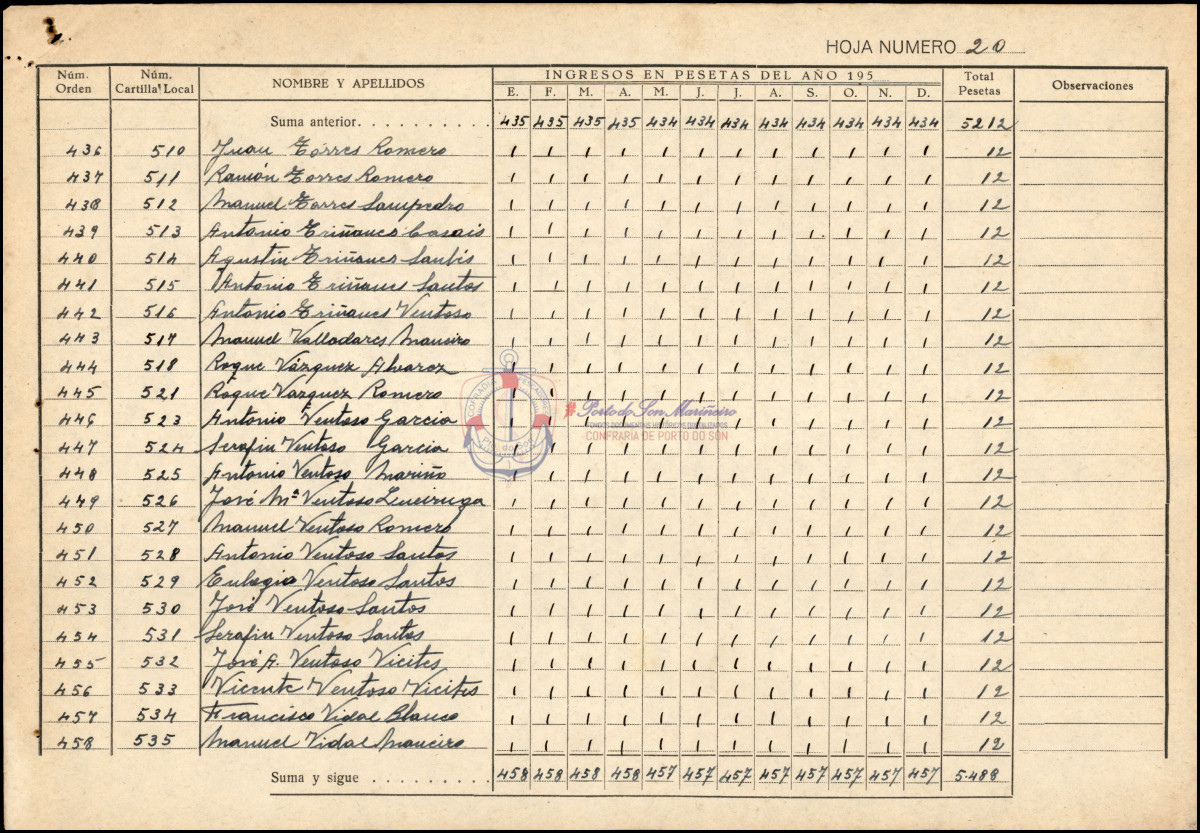 HOJA NUMERO 20
Núm. Orden Núm. Cartilla Local NOMBRE Y APELLIDOS INGRESOS EN PESETAS DEL AÑO 195 Total Pesetas Observaciones
E. F. M. A. M. J. J. A. S. O. N. D.
Suma anterior. 435 435 435 435 434 434 434 434 434 434 434 434 5212
436 510 Juan Torres Romero 1 1 1 1 1 1 1 1 1 1 1 1 12
437 511 Ramón Torres Romero 1 1 1 1 1 1 1 1 1 1 1 1 12
438 512 Manuel Torres Sampedro 1 1 1 1 1 1 1 1 1 1 1 1 12
439 513 Antonio Triñanes Casais 1 1 1 1 1 1 1 1 1 1 1 1 12
440 514 Agustin Triñanes 1 1 1 1 1 1 1 1 1 1 1 1 12
441 515 Antonio Triñanes Santos 1 1 1 1 1 1 1 1 1 1 1 1 12
442 516 Antonio Triñanes Ventoso 1 1 1 1 1 1 1 1 1 1 1 1 12
443 517 Manuel Valladares Maneiro 1 1 1 1 1 1 1 1 1 1 1 1 12
444 518 Roque Vázquez Alvarez 1 1 1 1 1 1 1 1 1 1 1 1 12
445 521 Roque Vazquez Romero 1 1 1 1 1 1 1 1 1 1 1 1 12
446 523 Antonio Ventoso Garcia 1 1 1 1 1 1 1 1 1 1 1 1 12
447 524 Serafin Ventoso Garcia 1 1 1 1 1 1 1 1 1 1 1 1 12
448 525 Antonio Ventoso Mariño 1 1 1 1 1 1 1 1 1 1 1 1 12
449 526 José Mª Ventoso 1 1 1 1 1 1 1 1 1 1 1 1 12
450 527 Manuel Ventoso Romero 1 1 1 1 1 1 1 1 1 1 1 1 12
451 528 Antonio Ventoso Santos 1 1 1 1 1 1 1 1 1 1 1 1 12
452 529 Eulogio Ventoso Santos 1 1 1 1 1 1 1 1 1 1 1 1 12
453 530 José Ventoso Santos 1 1 1 1 1 1 1 1 1 1 1 1 12
454 531 Serafin Ventoso Santos 1 1 1 1 1 1 1 1 1 1 1 1 12
455 532 José A. Ventoso Vieites 1 1 1 1 1 1 1 1 1 1 1 1 12
456 533 Vicente Ventoso Vieites 1 1 1 1 1 1 1 1 1 1 1 1 12
457 534 Francisco Vidal Blanco 1 1 1 1 1 1 1 1 1 1 1 1 12
458 535 Manuel Vidal Maneiro 1 1 1 1 1 1 1 1 1 1 1 1 12
Suma y sigue 458 458 458 458 457 457 457 457 457 457 457 457 5.488
#Porto do Son Mariñeiro
FONDOS DOCUMENTAIS HISTÓRICOS DIXITALIZADOS
CONFRARIA DE PORTO DO SON